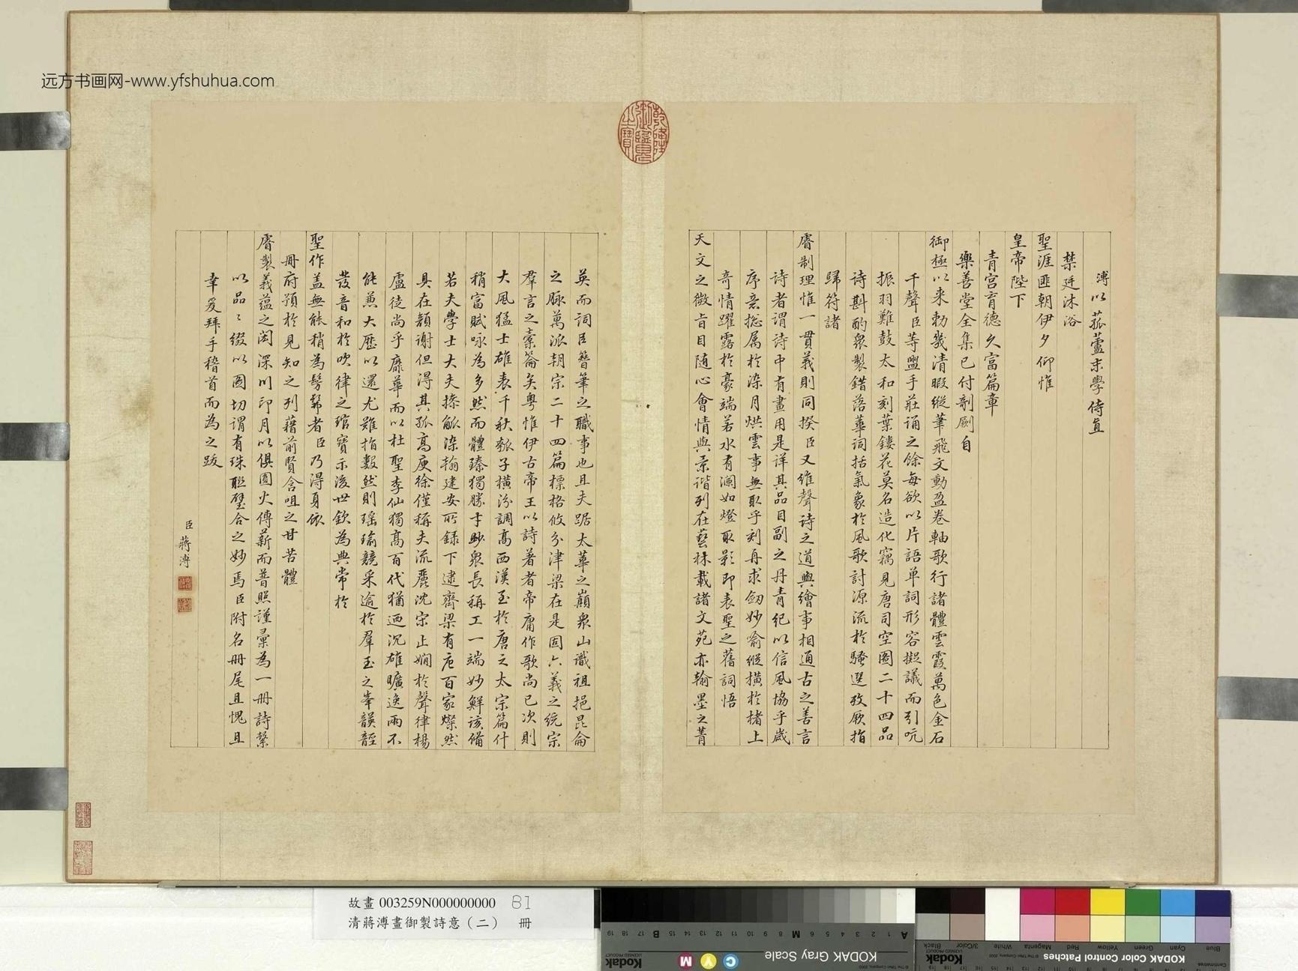 远方书画网-www.yfshuhua.com
溥以菰蘆末學侍直
禁廷沐浴
聖涯匪朝伊夕仰惟
皇帝陛下
青宮育德久富篇章
樂善堂全集已付剞劂自
御極以來勅幾清暇縱筆飛文動盈卷軸歌行諸體雲霞萬色金石
千聲臣等盥手莊誦之餘每欲以片語單詞形容擬議而引吭
振羽難鼓太和刻葉鏤花莫名造化竊見唐司空圖二十四品
詩斟酌衆製錯落華詞括氣象於風歌討源流於騷選攷厥指
歸符諸
睿制理惟一貫義則同揆臣又維聲詩之道與繪事相通古之善言
詩者謂詩中有畫用是詳其品目副之丹青紀以信風協乎歲
序意摠属於染月烘雲事無取乎刻舟求劒妙喻縱横於楮上
奇情躍露於豪端若水有瀾如燈取影即表聖之舊詞悟
天文之微旨目随心會情與景谐列在藝林載諸文苑亦翰墨之菁
英而詞臣簪筆之職事也且夫踞太華之巔衆山識祖挹昆侖
之脉萬派朝宗二十四篇標格攸分津梁在是固六義之統宗
羣言之橐籥矣粤惟伊古帝王以詩著者帝庸作歌尚已次則
大風猛士雄表千秋瓠子横汾調高西漢至於唐之太宗篇什
稍富賦咏為多然而體臻獨勝才尠衆長稱工一端妙鮮該備
若夫學士大夫操觚染翰建安所錄下逮齊梁有唐百家燦然
具在顏謝但得其孤高庾徐僅稱夫流麗沈宋止嫻於聲律楊
盧徒尚乎靡華而以杜聖李仙獨高百代猶迺沉雄曠逸兩不
能兼大歷以還尤難指數然則瑶瑜競采逾於羣玉之峯韻䪫
發音和於吹律之琯寳示後世欽為典常於
聖作盖無能稍為髣髴者臣乃得身依
冊府預於見知之列藉前賢含咀之甘苦體
睿製義蘊之閎深川印月以俱圓火傳薪而普照謹彙為一冊詩繫
以品品綴以圖切謂有珠聯璧合之妙焉臣附名冊尾且愧且
幸爰拜手稽首而為之跋
臣蔣溥
乾隆御覽之寳
故畫 003259N000000000 B1
清蔣溥畫御製詩意（二） 冊
KODAK Gray Scale
Kodak
KODAK Color Control Patches
Kodak